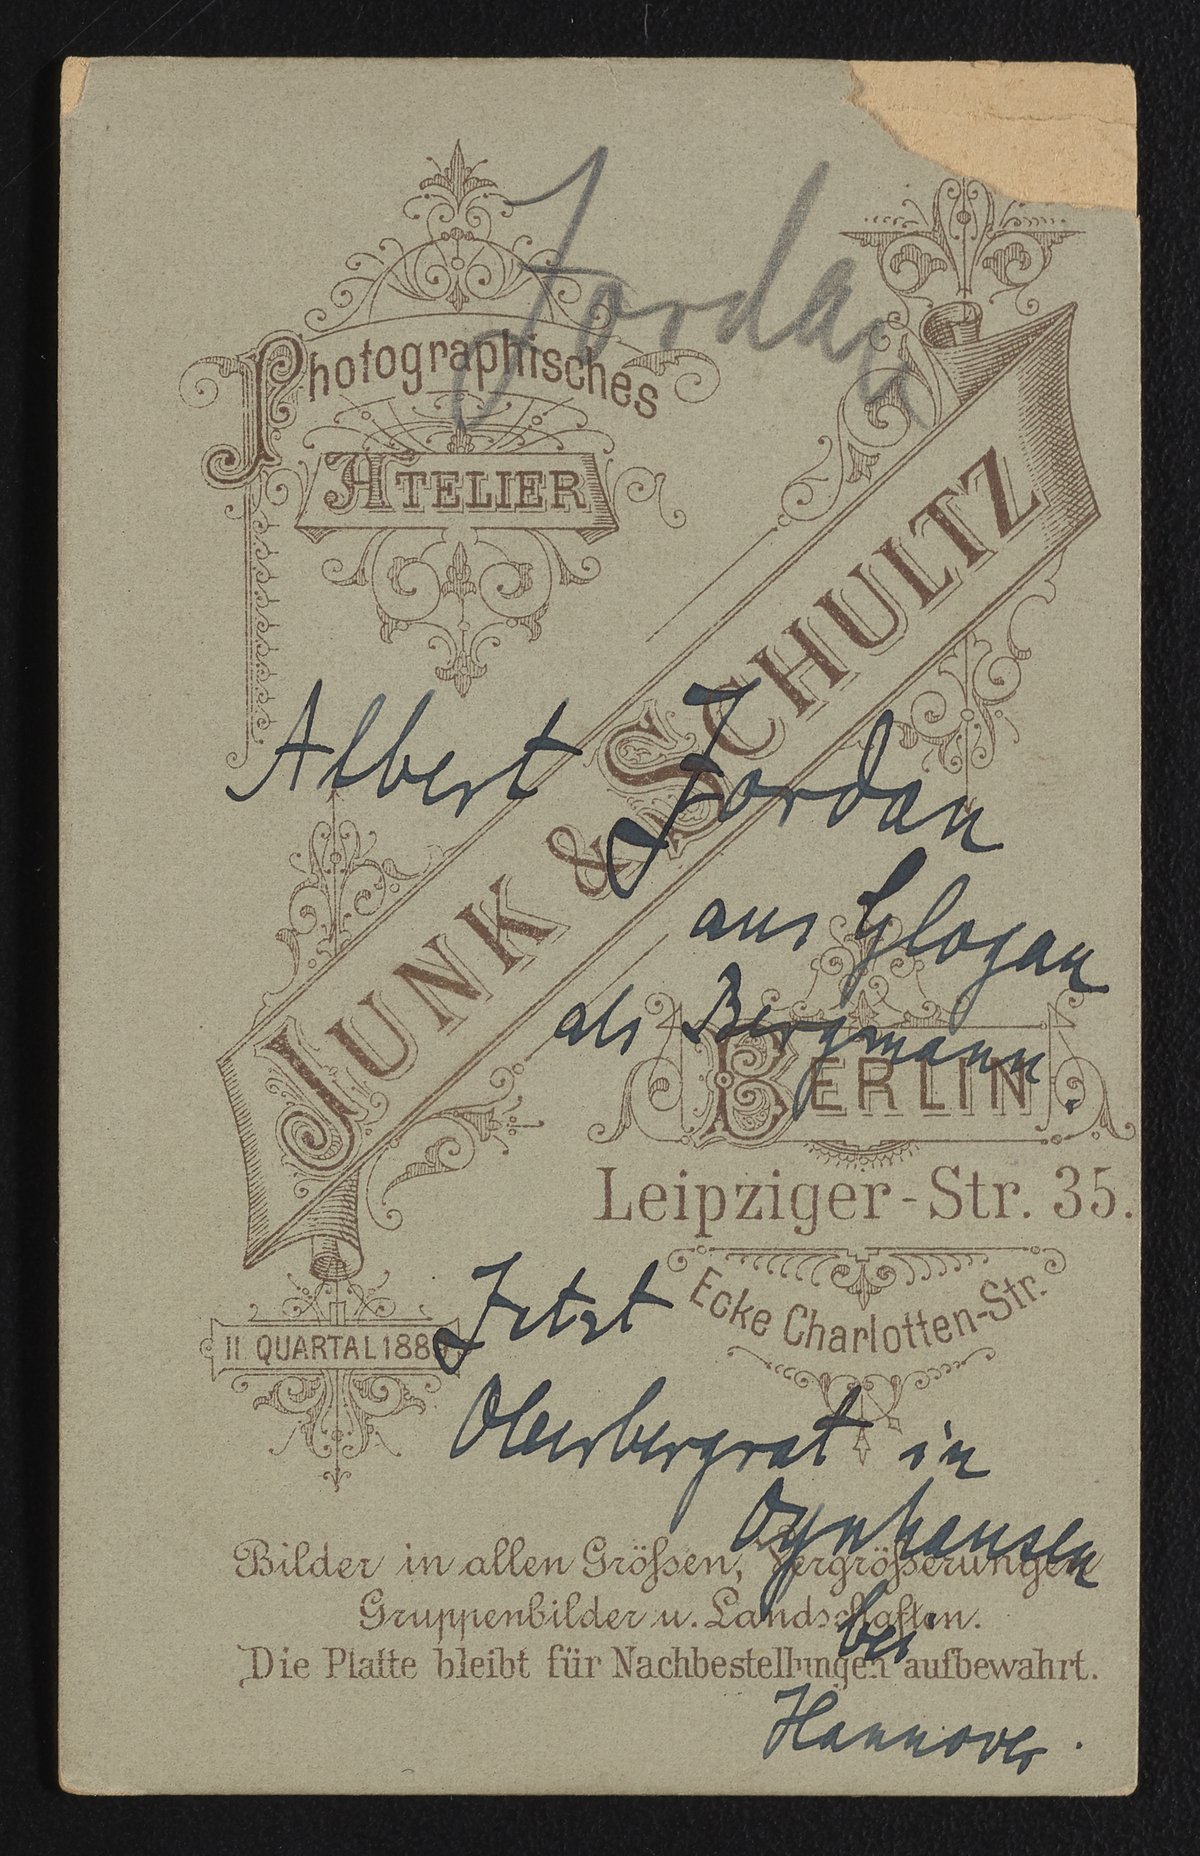 Jordan
Photographisches
ATELIER
JUNK & SCHULTZ
Albert Jordan
aus Glogau
als Bergmann.
BERLIN
Leipziger-Str. 35.
Ecke Charlotten-Str.
II QUARTAL 188
Jetzt
Oberbergrat in
Oynhausen
bei
Hannover.
Bilder in allen Größen, Vergrößerungen
Gruppenbilder u. Landschaften.
Die Platte bleibt für Nachbestellungen aufbewahrt.